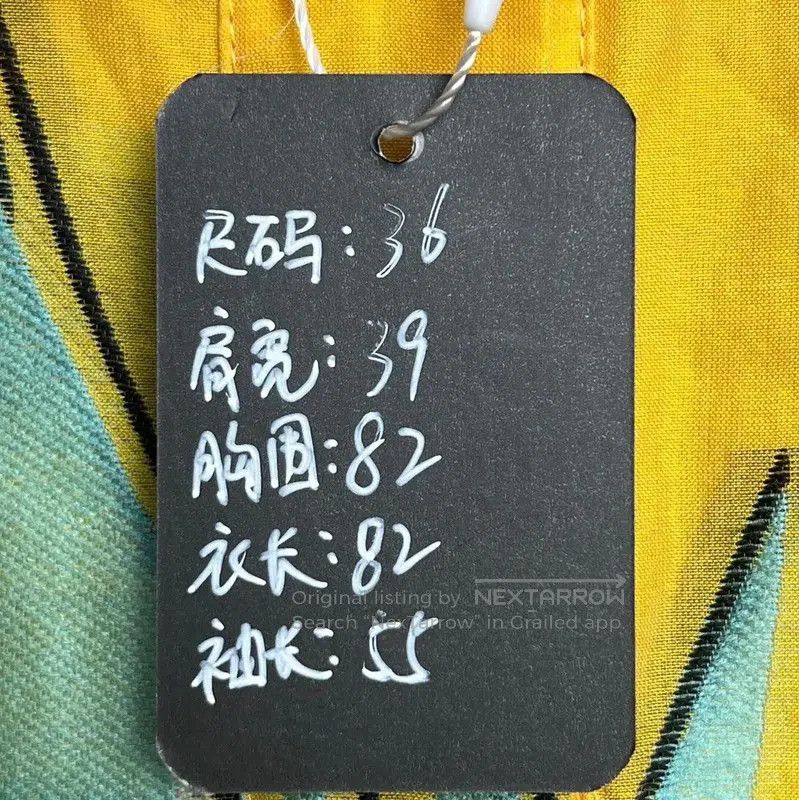 尺码:36
肩宽:39
胸围:82
衣长:82
袖长:55
Original listing by NEXTARROW
Search "NexTarrow" in Grailed app.